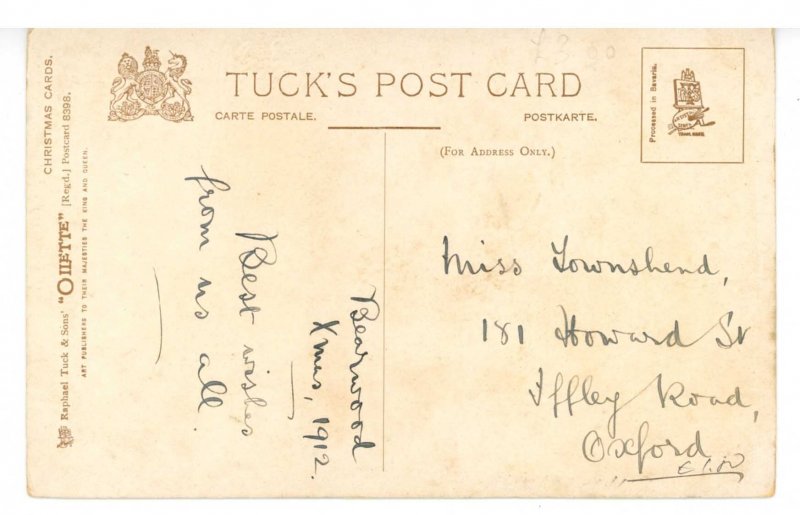 TUCK'S POST CARD
CARTE POSTALE.
POSTKARTE.
(FOR ADDRESS ONLY.)
CHRISTMAS CARDS.
Raphael Tuck & Sons' "OILETTE" [Regd.] Postcard 8398.
ART PUBLISHERS TO THEIR MAJESTIES THE KING AND QUEEN.
Processed in Bavaria.
£3.00
Bearwood
Xmas, 1912.
Best wishes
from us all.
Miss Townshend,
181 Howard St
Iffley Road,
Oxford
£1.00